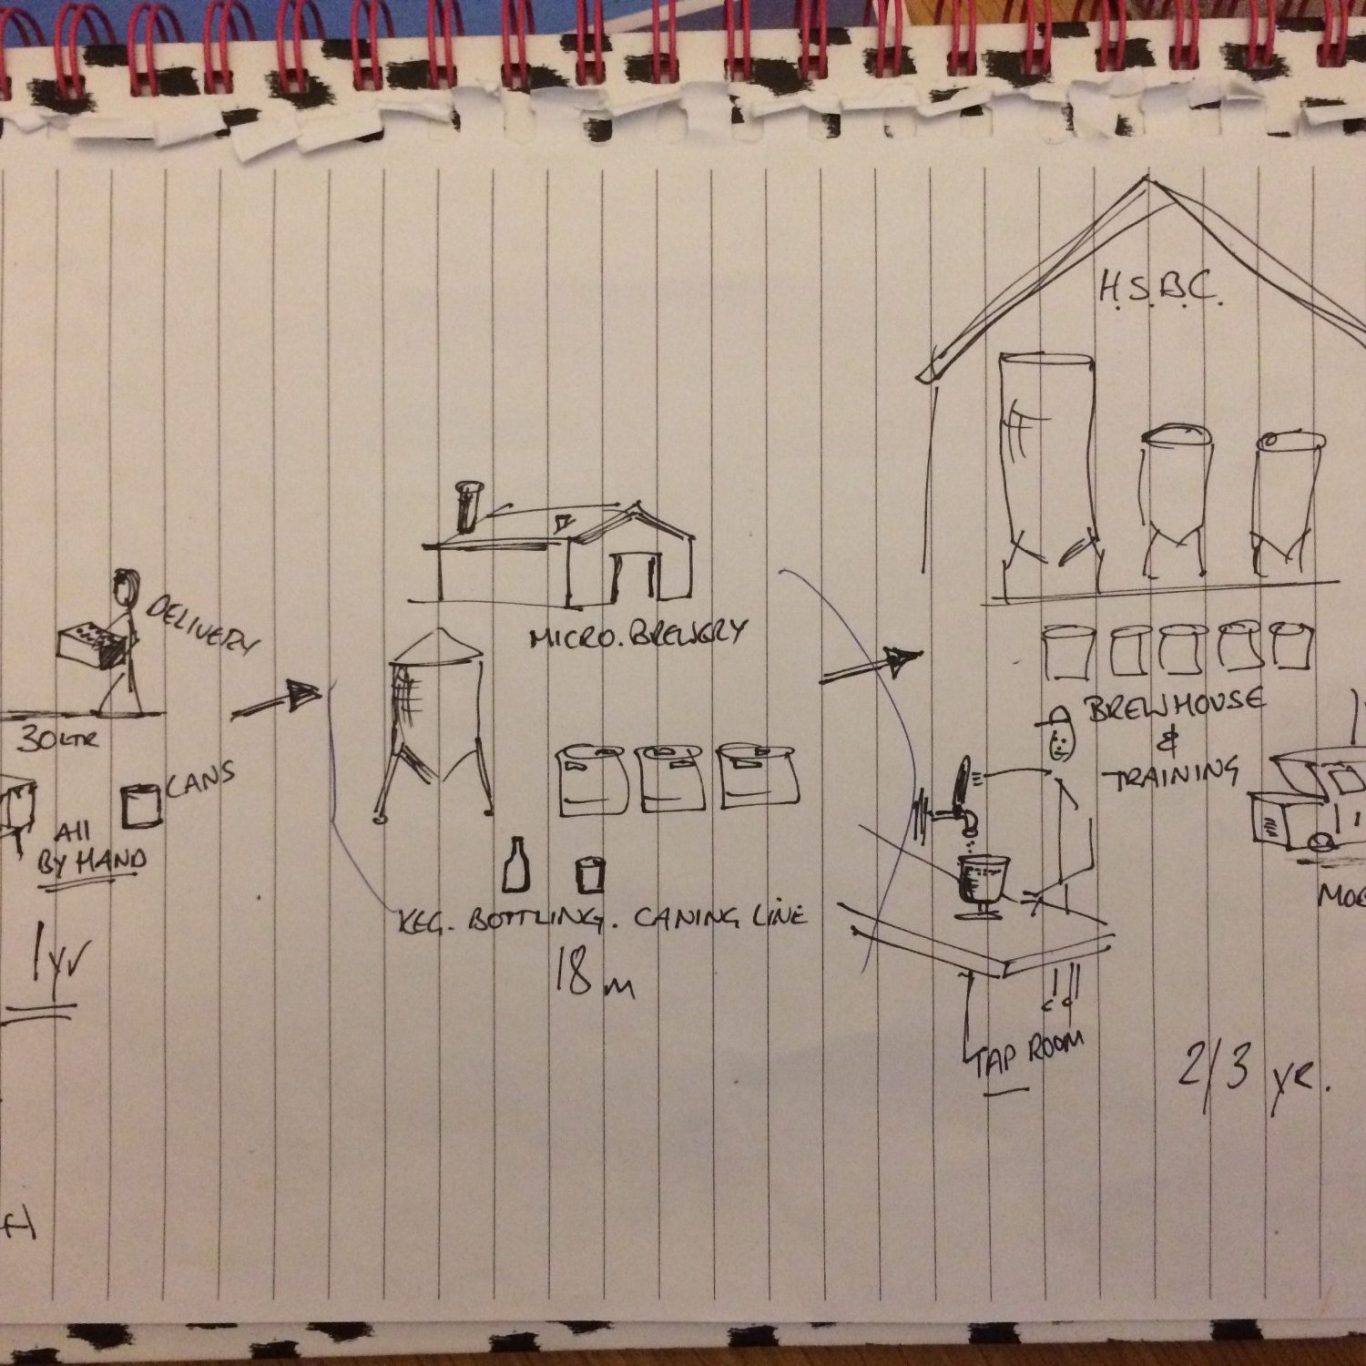 DELIVERY
30LTR
CANS
All
BY HAND
1yr
MICRO.BREWERY
KEG. BOTTLING. CANING LINE
18 m
H.S.B.C.
BREWHOUSE
&
TRAINING
TAP ROOM
2/3 yr.